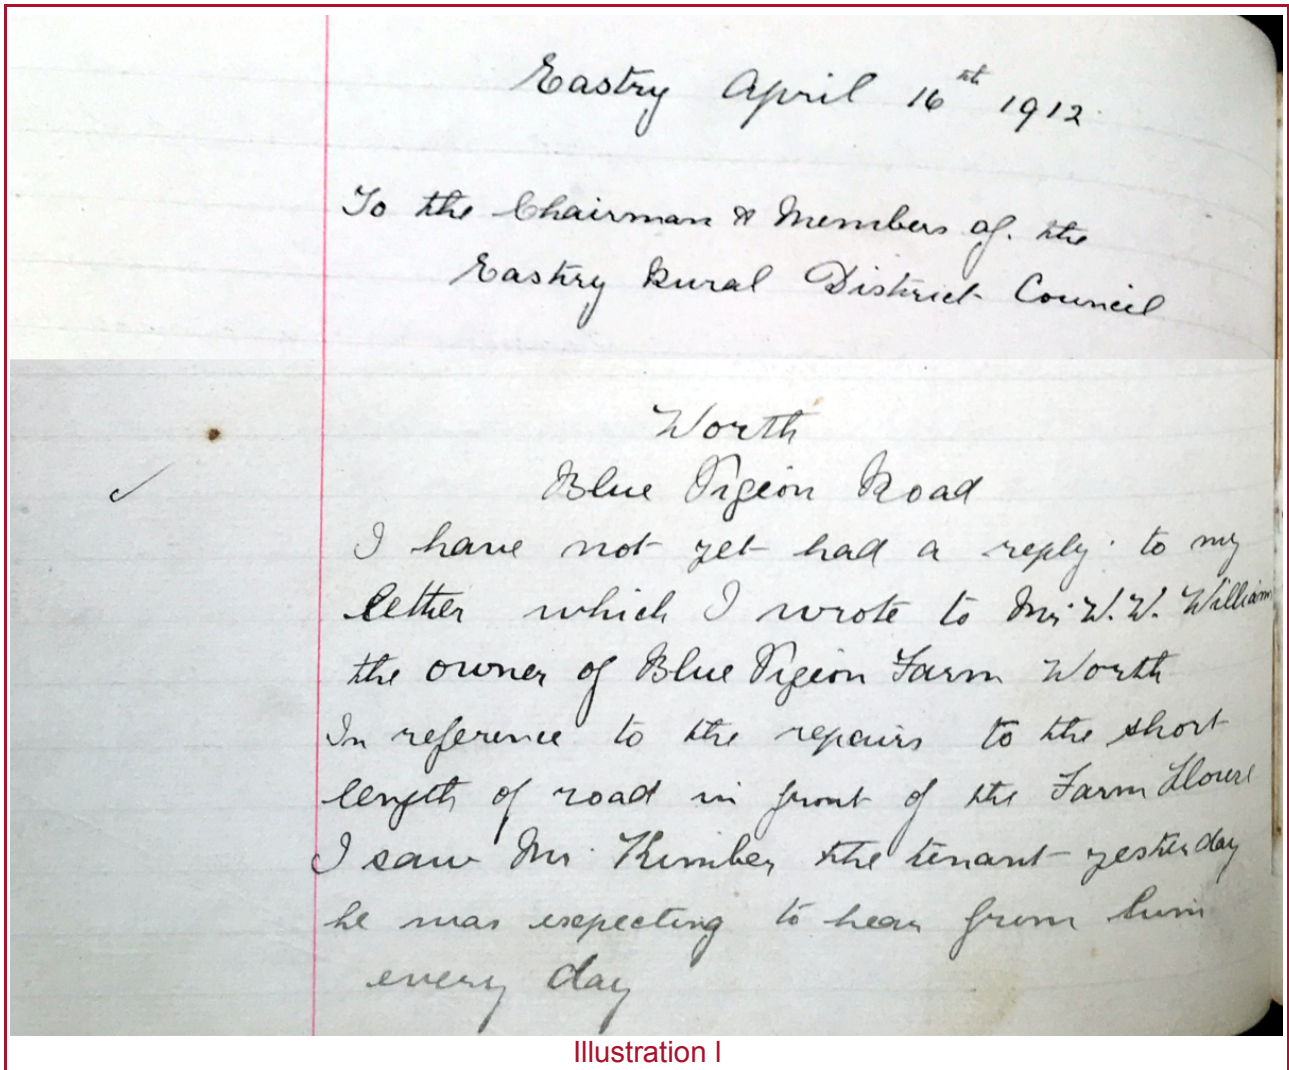 Eastry April 16th 1912
To the Chairman & Members of. the
Eastry Rural District Council
Worth
Blue Pigeon Road
I have not yet had a reply to my
letter which I wrote to Mr W. W. William
the owner of Blue Pigeon Farm Worth
In reference to the repairs to the short
length of road in front of the Farm House
I saw Mr. Kimber the tenant yesterday
he was expecting to hear from him
every day
Illustration I